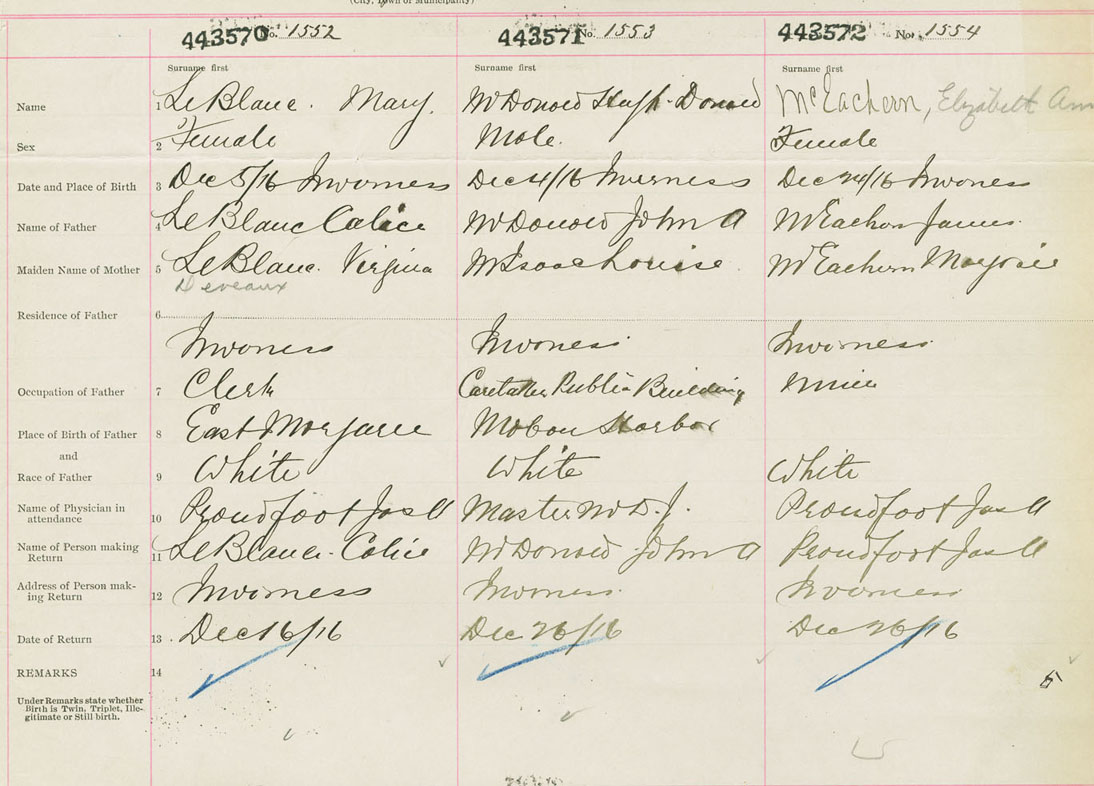 (City, Town or Municipality)
443570 No. 1552 443571 No. 1553 443572 No. 1554
Surname first Surname first Surname first
Name 1 LeBlanc. Mary. McDonald Hugh Donald McEachern, Elizabeth Ann
Sex 2 Female Male. Female
Date and Place of Birth 3 Dec 5/16 Inverness Dec 4/16 Inverness Dec 24/16 Inverness
Name of Father 4 LeBlanc Calice McDonald John A McEachern James
Maiden Name of Mother 5 LeBlanc. Virgina McIsaac Louise. McEachern Marjorie
Deveaux
Residence of Father 6
Inverness Inverness Inverness
Occupation of Father 7 Clerk Caretaker Public Building Miner
Place of Birth of Father 8 East Margaree Mabou Harbor
and
Race of Father 9 White White White
Name of Physician in
attendance 10 Proudfoot Jas A Master M D. J. Proudfoot Jas A
Name of Person making
Return 11 LeBlanc. Calice McDonald John A Proudfoot Jas A
Address of Person mak-
ing Return 12 Inverness Inverness Inverness
Date of Return 13 Dec 16/16 Dec 26/16 Dec 26/16
REMARKS 14
Under Remarks state whether
Birth is Twin, Triplet, Ille-
gitimate or Still birth.